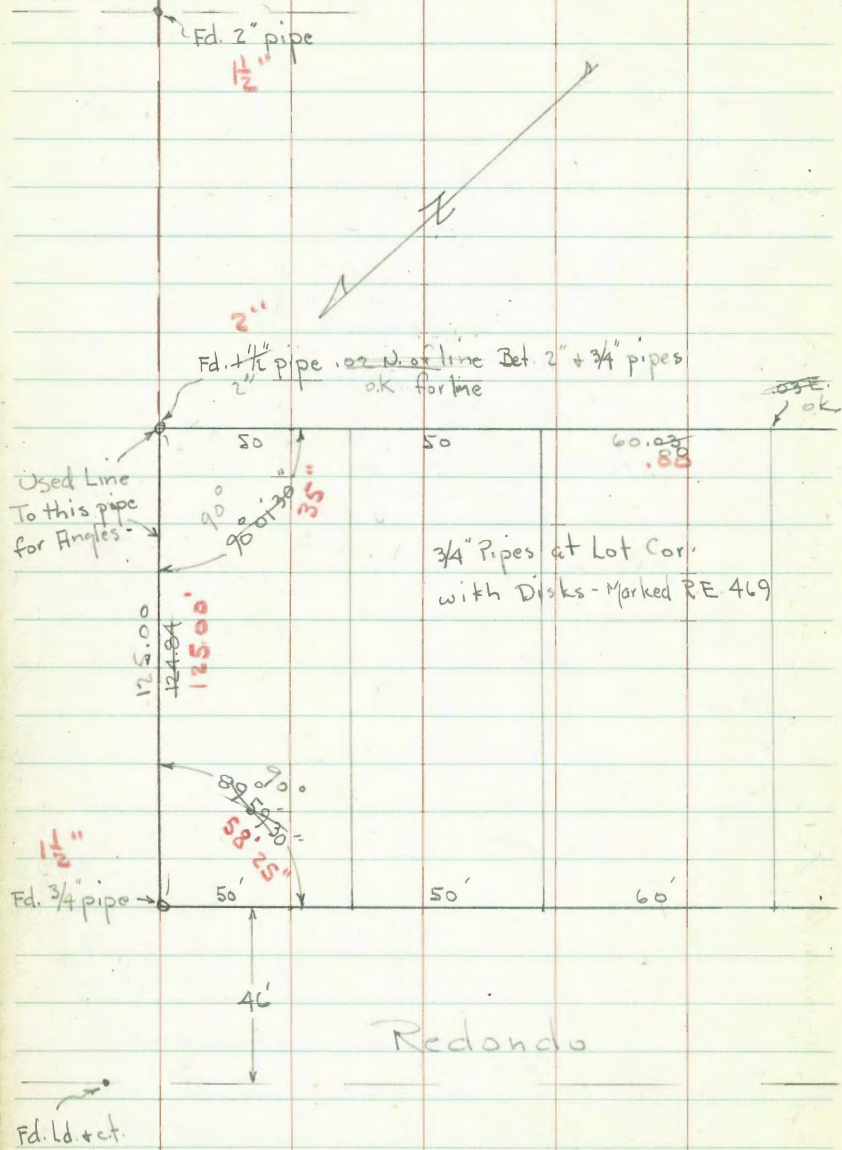 Fd. 2" pipe
1 1/2"
N
2"
Fd. + 1 1/2" pipe .02 N. of line Bet. 2" + 3/4" pipes
2" o.k. for line
.03 E.
ok
50 50 60.03
.88
Used Line
To this pipe
for Angles-
90°
90° 01' 30"
35"
3/4" Pipes at Lot Cor.
with Disks - Marked R.E. 469
125.00
124.84
125.00'
90°
89° 59' 30"
58' 25"
1 1/2"
Fd. 3/4" pipe
50' 50' 60'
46'
Redondo
Fd. Ld. + ct.